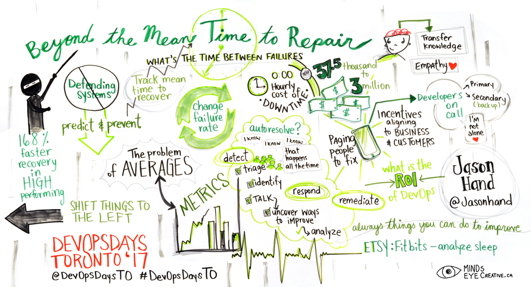 Beyond the Mean Time to Repair
WHAT'S THE TIME BETWEEN FAILURES
Defending
systems
predict & prevent
Track mean
time to
recover
change
failure
rate
0:00
Hourly
cost of
DOWNTIME
37.5
thousand
to
3
million
Transfer
knowledge
Empathy
Developers
on
call
Primary
Secondary
(back up!)
I'm
not
alone
Incentives
aligning
to BUSINESS
& CUSTOMERS
Paging
people
to fix
168%
faster
recovery
in
HIGH
performing
The problem
of
AVERAGES
METRICS
autoresolve?
I KNOW
I KNOW
I KNOW
that
happens
all the time
detect
triage
identify
TALK
uncover ways
to improve
analyze
respond
remediate
what is the
ROI
of DevOps
Jason
Hand
@Jasonhand
SHIFT THINGS TO
THE LEFT
always things you can do to improve
ETSY: Fitbits - analyze sleep
DEVOPSDAYS
TORONTO '17
@DevOpsDaysTO #DevOpsDaysTO
MINDS
EYE CREATIVE.CA